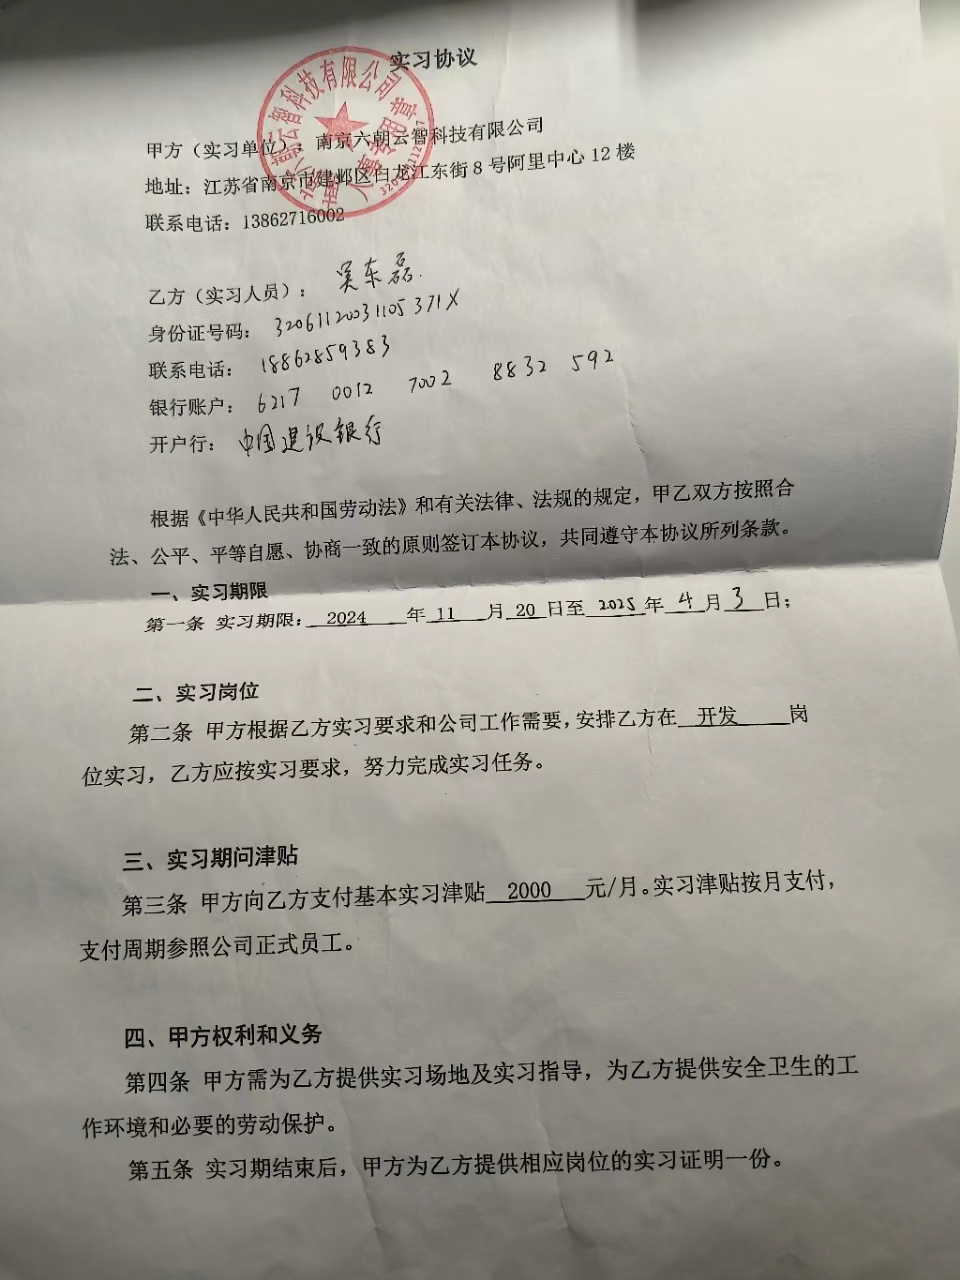 实习协议
甲方（实习单位）：南京六朝云智科技有限公司
地址：江苏省南京市建邺区白龙江东街8号阿里中心12楼
联系电话：13862716002
乙方（实习人员）：吴东磊
身份证号码：32061120031105371X
联系电话：18862859383
银行账户：6217 0012 7002 8832 592
开户行：中国建设银行
根据《中华人民共和国劳动法》和有关法律、法规的规定，甲乙双方按照合
法、公平、平等自愿、协商一致的原则签订本协议，共同遵守本协议所列条款。
一、实习期限
第一条 实习期限：2024年11月20日至2025年4月3日；
二、实习岗位
第二条 甲方根据乙方实习要求和公司工作需要，安排乙方在 开发 岗
位实习，乙方应按实习要求，努力完成实习任务。
三、实习期问津贴
第三条 甲方向乙方支付基本实习津贴 2000 元/月。实习津贴按月支付，
支付周期参照公司正式员工。
四、甲方权利和义务
第四条 甲方需为乙方提供实习场地及实习指导，为乙方提供安全卫生的工
作环境和必要的劳动保护。
第五条 实习期结束后，甲方为乙方提供相应岗位的实习证明一份。